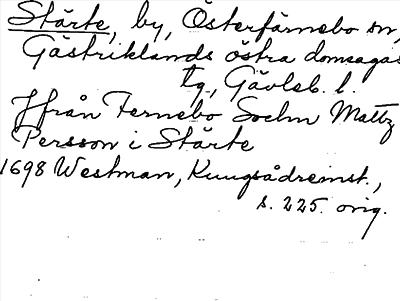 Stärte, by, Österfärnebo sn,
Gästriklands östra domsagas
tg., Gävleb. l.
Jfrån Fernebo Sochn Mattz
Persson i Stärte
1698 Westman, Kungsådreinst.,
s. 225 orig.